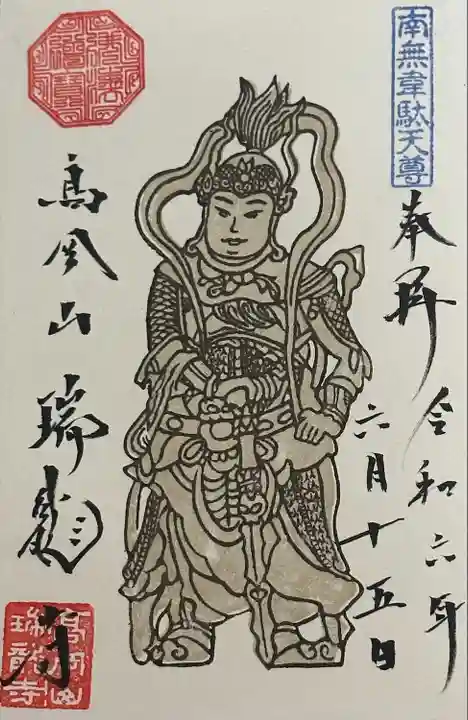 南無韋駄天尊
奉拝
令和六年
六月十五日
高岡山
瑞龍寺
高岡山
瑞龍寺